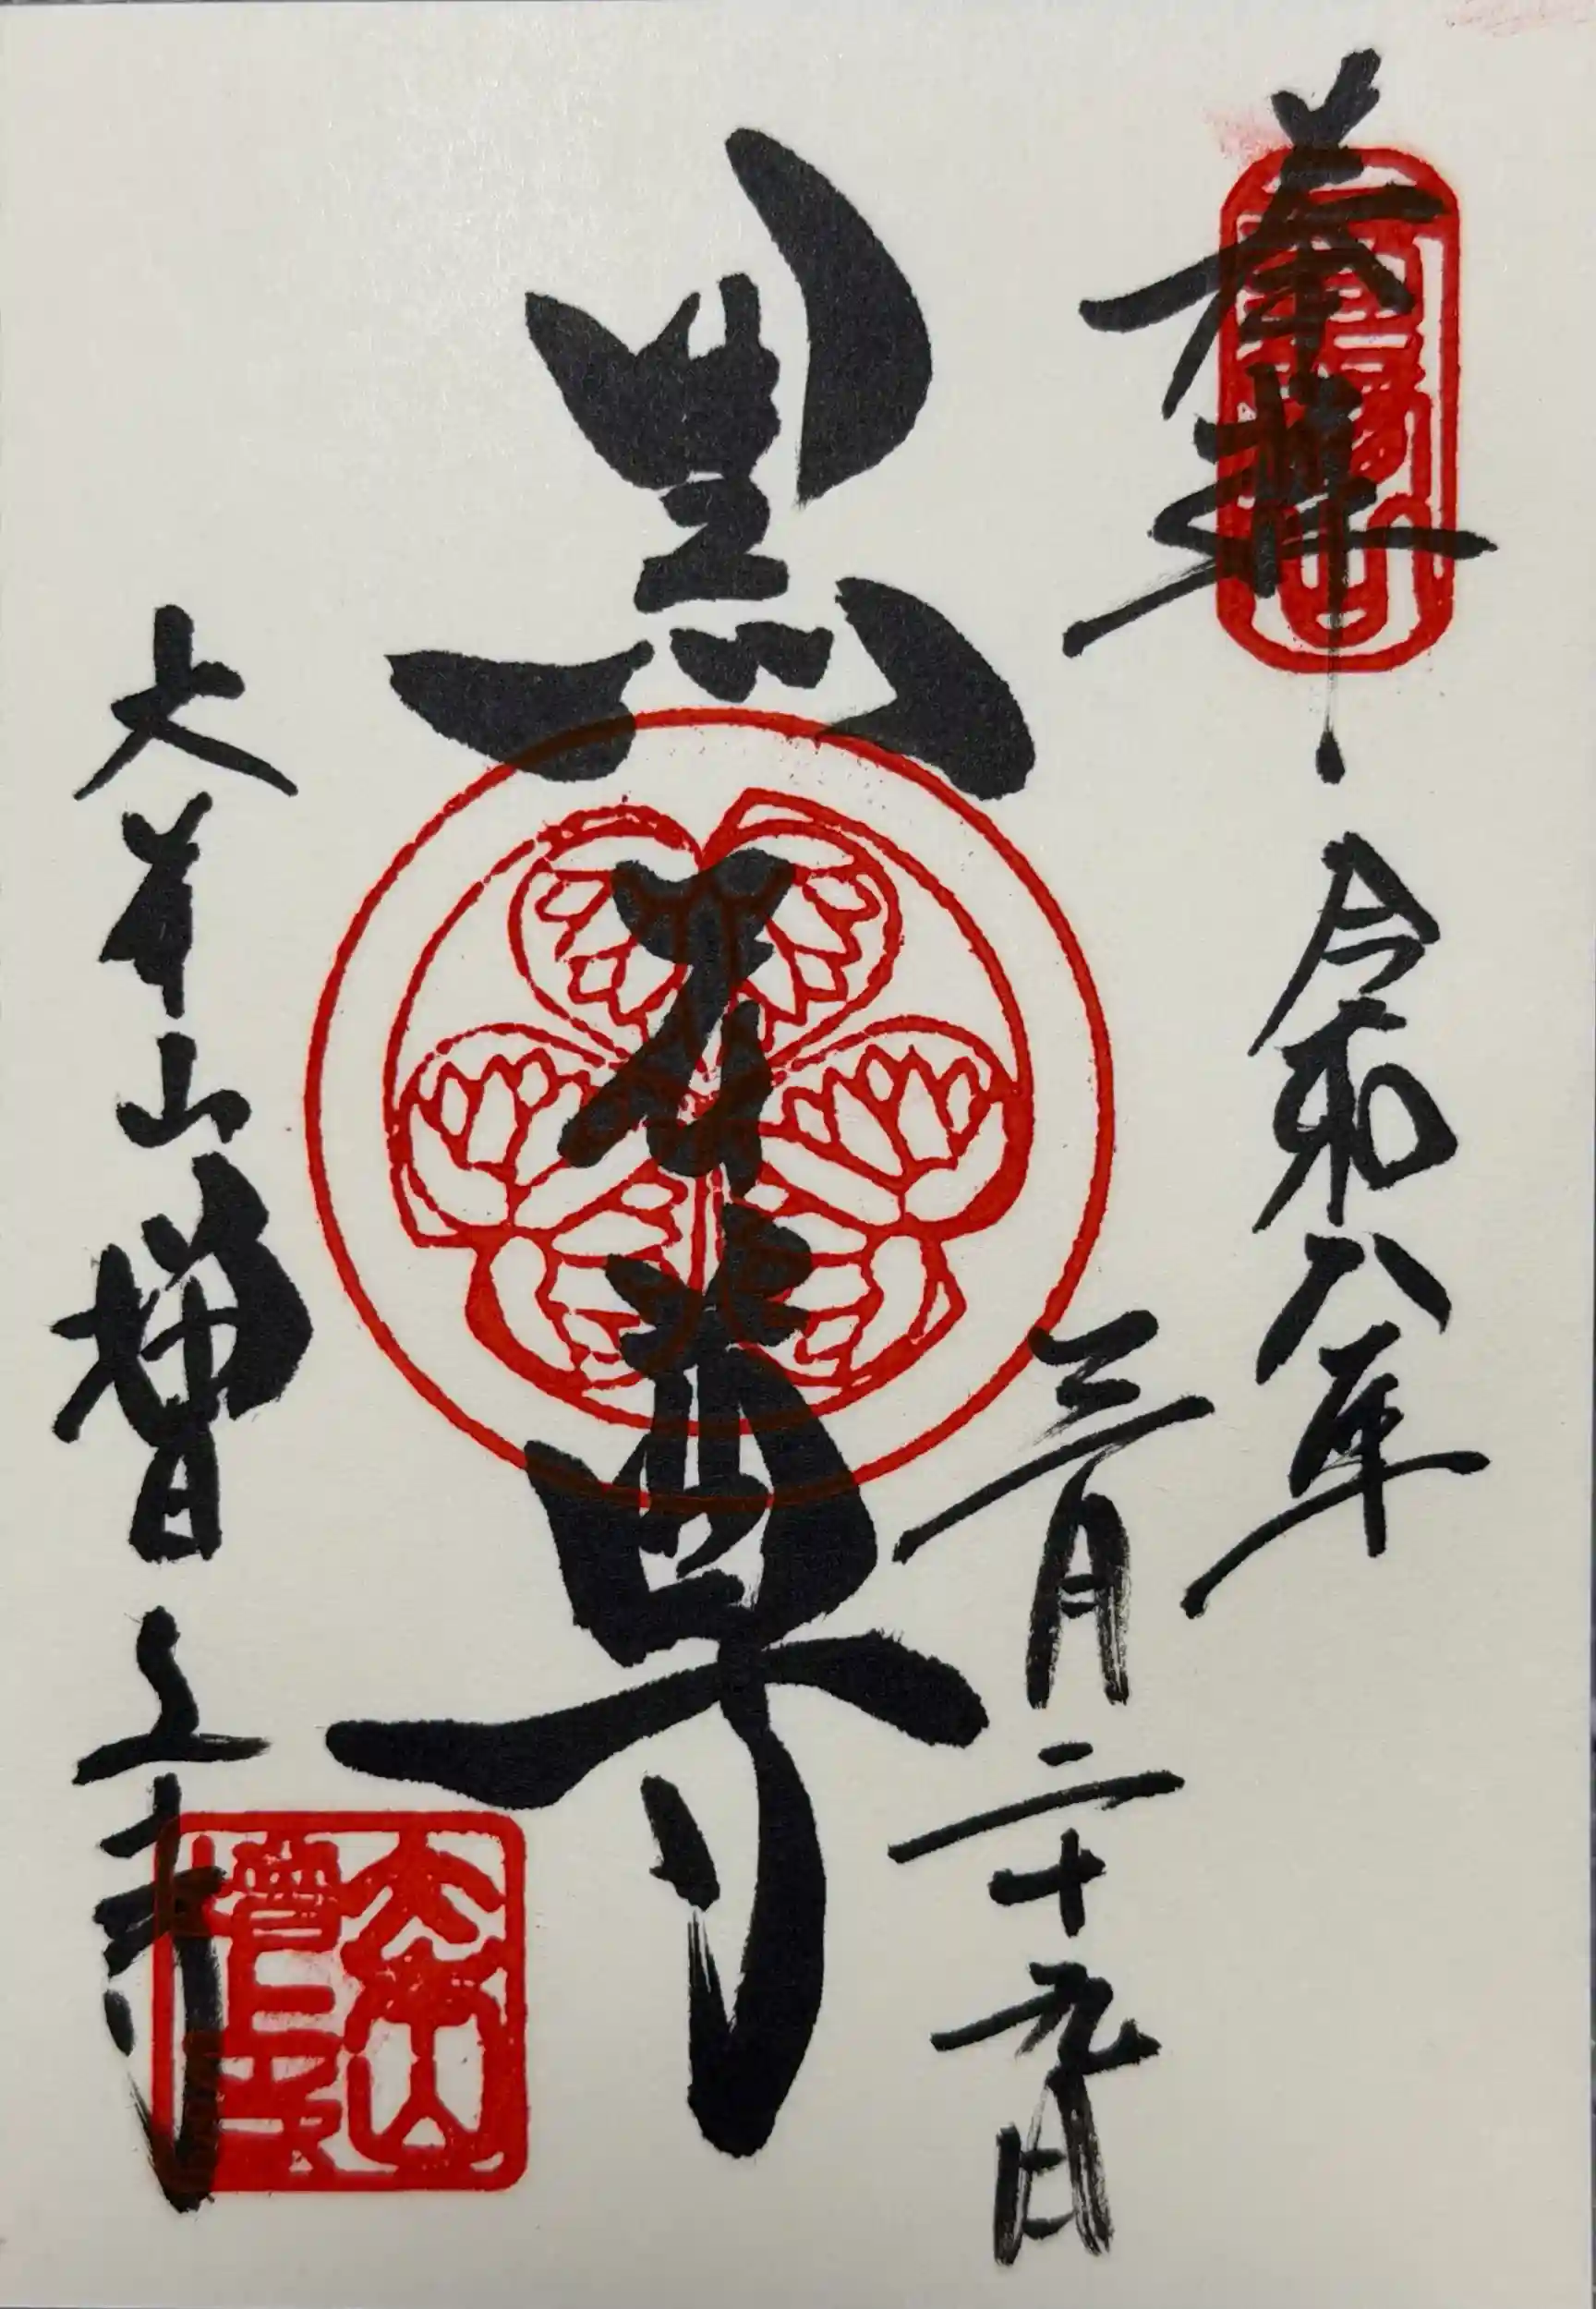 奉拝
令和八年
三月二十九日
黒本尊
大本山増上寺
大本山
增上寺